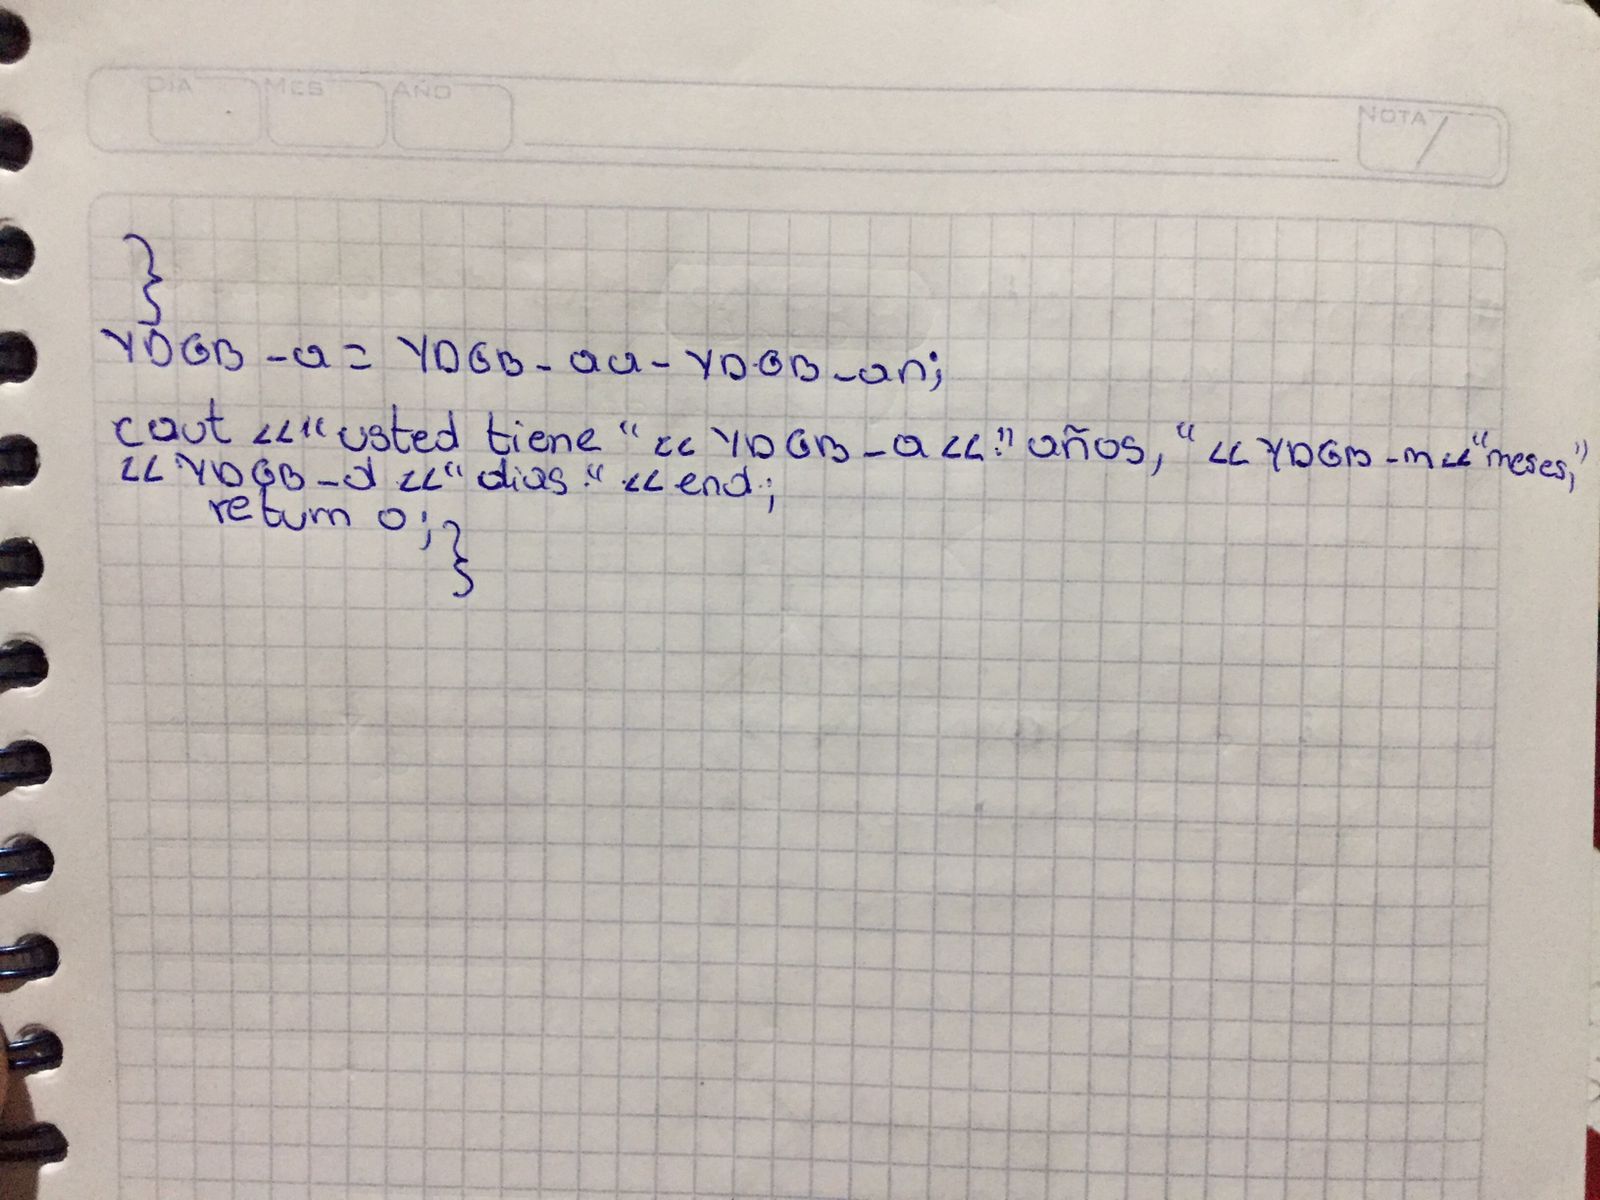 DIA MES AÑO NOTA
}
YDGB_a = YDGB_aa - YDGB_an;
cout <<"usted tiene "<< YDGB_a <<" años, "<< YDGB_m<<"meses,"
<< YDGB_d <<" dias."<< end;
return 0; }